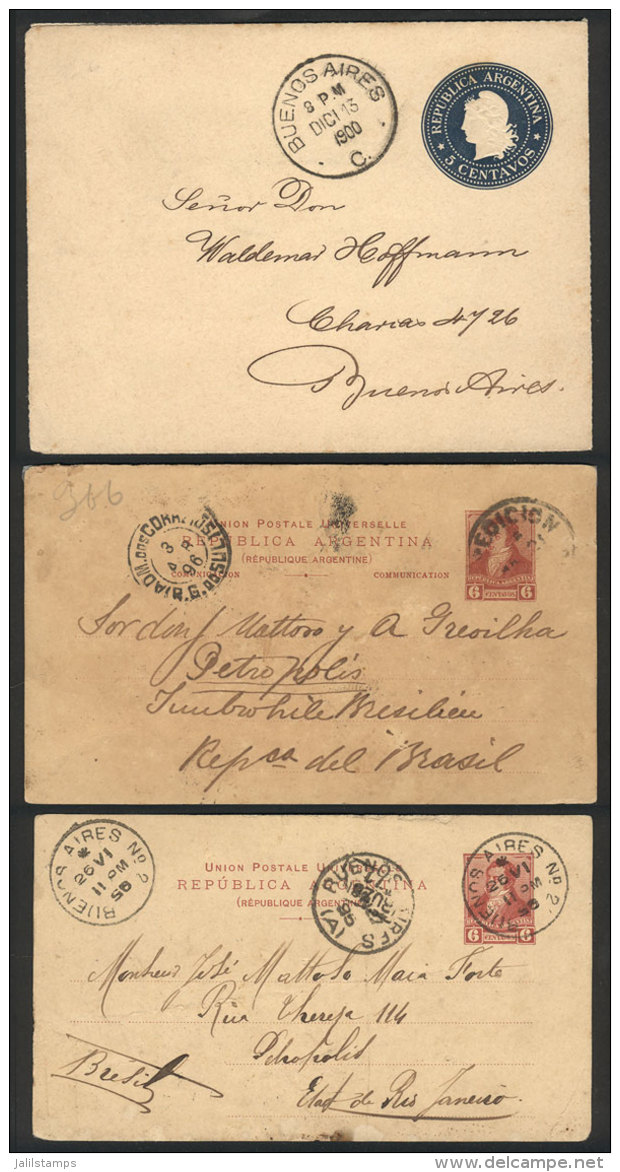 BUENOS AIRES
8 PM
DICI 13
1900
C.
REPÚBLICA ARGENTINA
5 CENTAVOS
Señor Don
Waldemar Hoffmann
Charcas 4726
Buenos Aires.
366
UNION POSTALE UNIVERSELLE
REPÚBLICA ARGENTINA
(RÉPUBLIQUE ARGENTINE)
COMUNICACION
COMMUNICATION
3
96
EDICION
6 CENTAVOS 6
Mattoso y A
Petropolis
Repca del Brasil
BUENOS AIRES No 2
26 VI
11 PM
UNION POSTALE UNIVERSELLE
REPÚBLICA ARGENTINA
(RÉPUBLIQUE ARGENTINE)
BUENOS AIRES
(A)
BUENOS AIRES No 2
26 VI
11 PM
6 CENTAVOS 6
Monsieur José Mattoso Maia Forte
Rua Thereza 114
Petropolis
Brésil
Etat de Rio Janeiro.
jalilstamps
delcampe.net